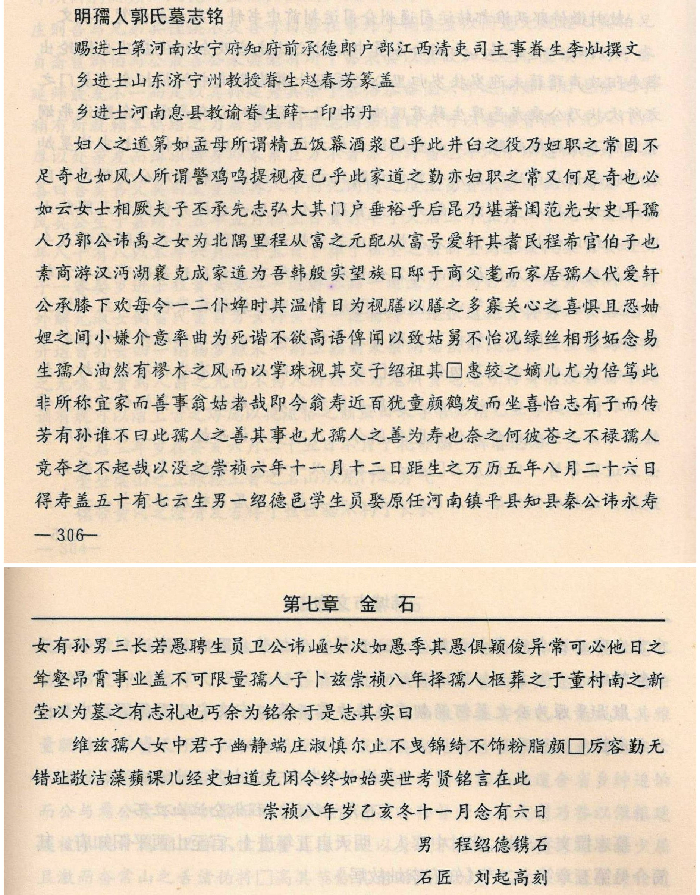 明孺人郭氏墓志铭
赐进士第河南汝宁府知府前承德郎户部江西清吏司主事眷生李灿撰文
乡进士山东济宁州教授眷生赵春芳篆盖
乡进士河南息县教谕眷生薛一印书丹
妇人之道第如孟母所谓精五饭幕酒浆已乎此井臼之役乃妇职之常固不
足奇也如风人所谓警鸡鸣提视夜已乎此家道之勤亦妇职之常又何足奇也必
如云女士相厥夫子丕承先志弘大其门户垂裕乎后昆乃堪著闺范光女史耳孺
人乃郭公讳禹之女为北隅里程从富之元配从富号爱轩其耆民程希官伯子也
素商游汉沔湖襄克成家道为吾韩殷实望族日邸于商父耄而家居孺人代爱轩
公承膝下欢每令一二仆婢时其温情日为视膳以膳之多寡关心之喜惧且恐妯
娌之间小嫌介意率曲为死谐不欲高语俾闻以致姑舅不怡况绿丝相形妬念易
生孺人油然有樛木之风而以掌珠视其交子绍祖其□惠较之嫡儿尤为倍笃此
非所称宜家而善事翁姑者哉即今翁寿近百犹童颜鹤发而坐喜怡志有子而传
芳有孙谁不曰此孺人之善其事也尤孺人之善为寿也奈之何彼苍之不禄孺人
竟夺之不起哉以没之崇祯六年十一月十二日距生之万历五年八月二十六日
得寿盖五十有七云生男一绍德邑学生员娶原任河南镇平县知县秦公讳永寿
—306—
第七章 金 石
女有孙男三长若愚聘生员卫公讳㢮女次如愚季其愚俱颖俊异常可必他日之
耸壑昂霄事业盖不可限量孺人子卜兹崇祯八年择孺人柩葬之于董村南之新
茔以为墓之有志礼也丐余为铭余于是志其实曰
维兹孺人女中君子幽静端庄淑慎尔止不曳锦绮不饰粉脂颜□厉容勤无
错趾敬洁藻蘋课儿经史妇道克闲令终如始奕世考贤铭言在此
崇祯八年岁乙亥冬十一月念有六日
男 程绍德镌石
石匠 刘起高刻